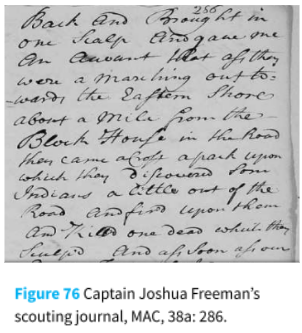 286
Back And Brought in
one Scalp And gave me
An Account that as they
were a marching out to=
=wards the Eastern Shore
about a Mile from the
Block House in the Road
they came a Cross a park upon
which they Discovered Som
Indians a little out of the
Road And fird upon them
And Kild one dead which they
Sculp'd And as Soon as our
Figure 76 Captain Joshua Freeman’s
scouting journal, MAC, 38a: 286.